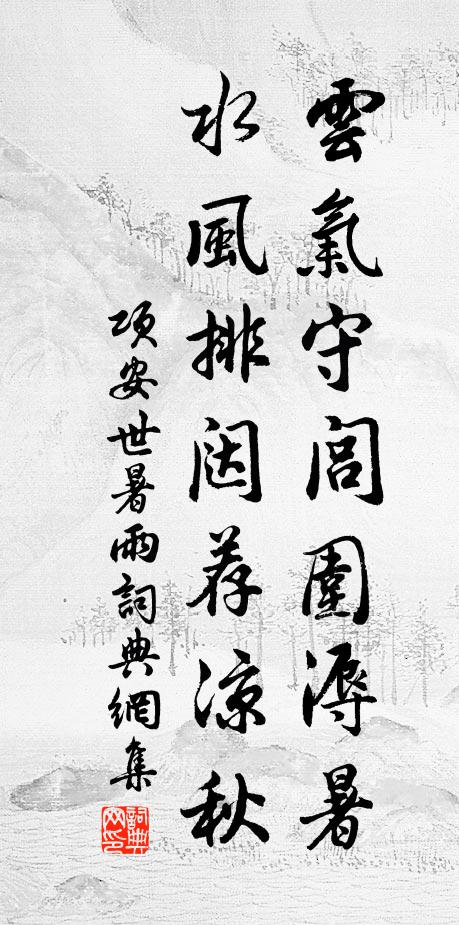 雲氣守閭圍溽暑
水風排闥荐涼秋
項安世暑雨詞典網集
詞典網印